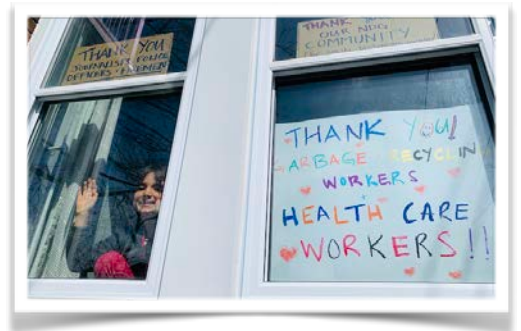 THANK YOU
JOURNALISTS POLICE
OFFICERS • FIREMEN
THANK
OUR NDG
COMMUNITY
THANK YOU!
GARBAGE RECYCLIN
WORKERS
HEALTH CARE
WORKERS!!